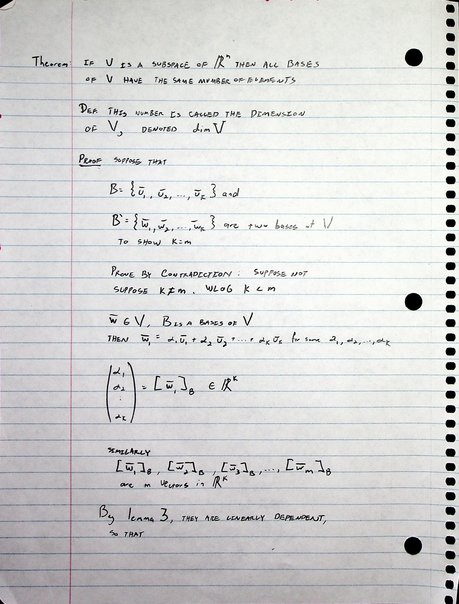 Theorem: IF V IS A SUBSPACE OF ℝⁿ THEN ALL BASES
OF V HAVE THE SAME NUMBER OF ELEMENTS
DEF THIS NUMBER IS CALLED THE DIMENSION
OF V, DENOTED dim V
PROOF SUPPOSE THAT
B = { v̄₁, v̄₂, ..., v̄ₖ } and
B' = { w̄₁, w̄₂, ..., w̄ₘ } are two bases of V
TO SHOW K=m
PROVE BY CONTRADICTION: SUPPOSE NOT
SUPPOSE K≠m. WLOG K<m
w̄ ∈ V, B IS A BASES OF V
THEN w̄₁ = α₁v̄₁ + α₂v̄₂ + ... + αₖv̄ₖ for some α₁, α₂, ..., αₖ
(α₁
α₂
⋮
αₖ) = [w̄₁]_B ∈ ℝᵏ
SIMILARLY
[w̄₁]_B, [w̄₂]_B, [w̄₃]_B, ..., [w̄ₘ]_B
are m vectors in ℝᵏ
By lemma 3, THEY ARE LINEARLY DEPENDENT,
SO THAT